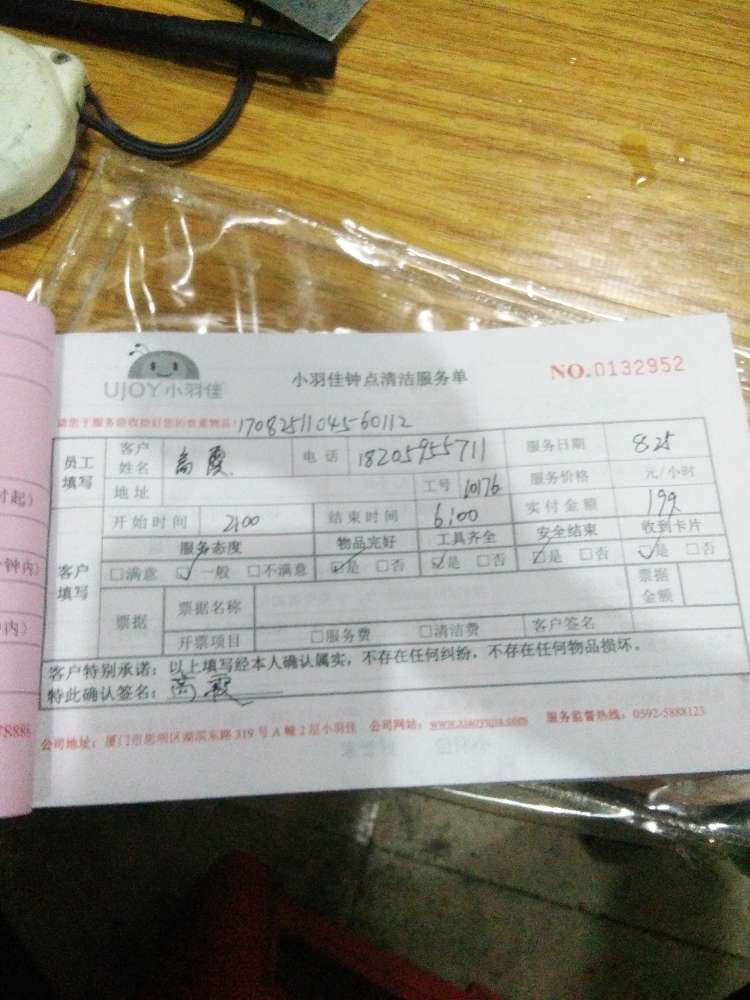 UJOY小羽佳
小羽佳钟点清洁服务单
NO.0132952
请您于服务前收拾好您的贵重物品! 1708251104560112
员工填写 客户姓名 高霞 电话 18205955711 服务日期 8.25
地址 工号 10176 服务价格 元/小时
客户填写 开始时间 2:00 结束时间 6:00 实付金额 199
服务态度 物品完好 工具齐全 安全结束 收到卡片
□满意 ☑一般 □不满意 ☑是 □否 ☑是 □否 ☑是 □否 ☑是 □否
票据 票据名称 票据金额
开票项目 □服务费 □清洁费 客户签名
客户特别承诺:以上填写经本人确认属实,不存在任何纠纷,不存在任何物品损坏。
特此确认签名:高霞
公司地址:厦门市思明区湖滨东路319号A幢2层小羽佳 公司网站:www.xiaoyujia.com 服务监督热线:0592-5888123
时起)
钟内)
内)
78888